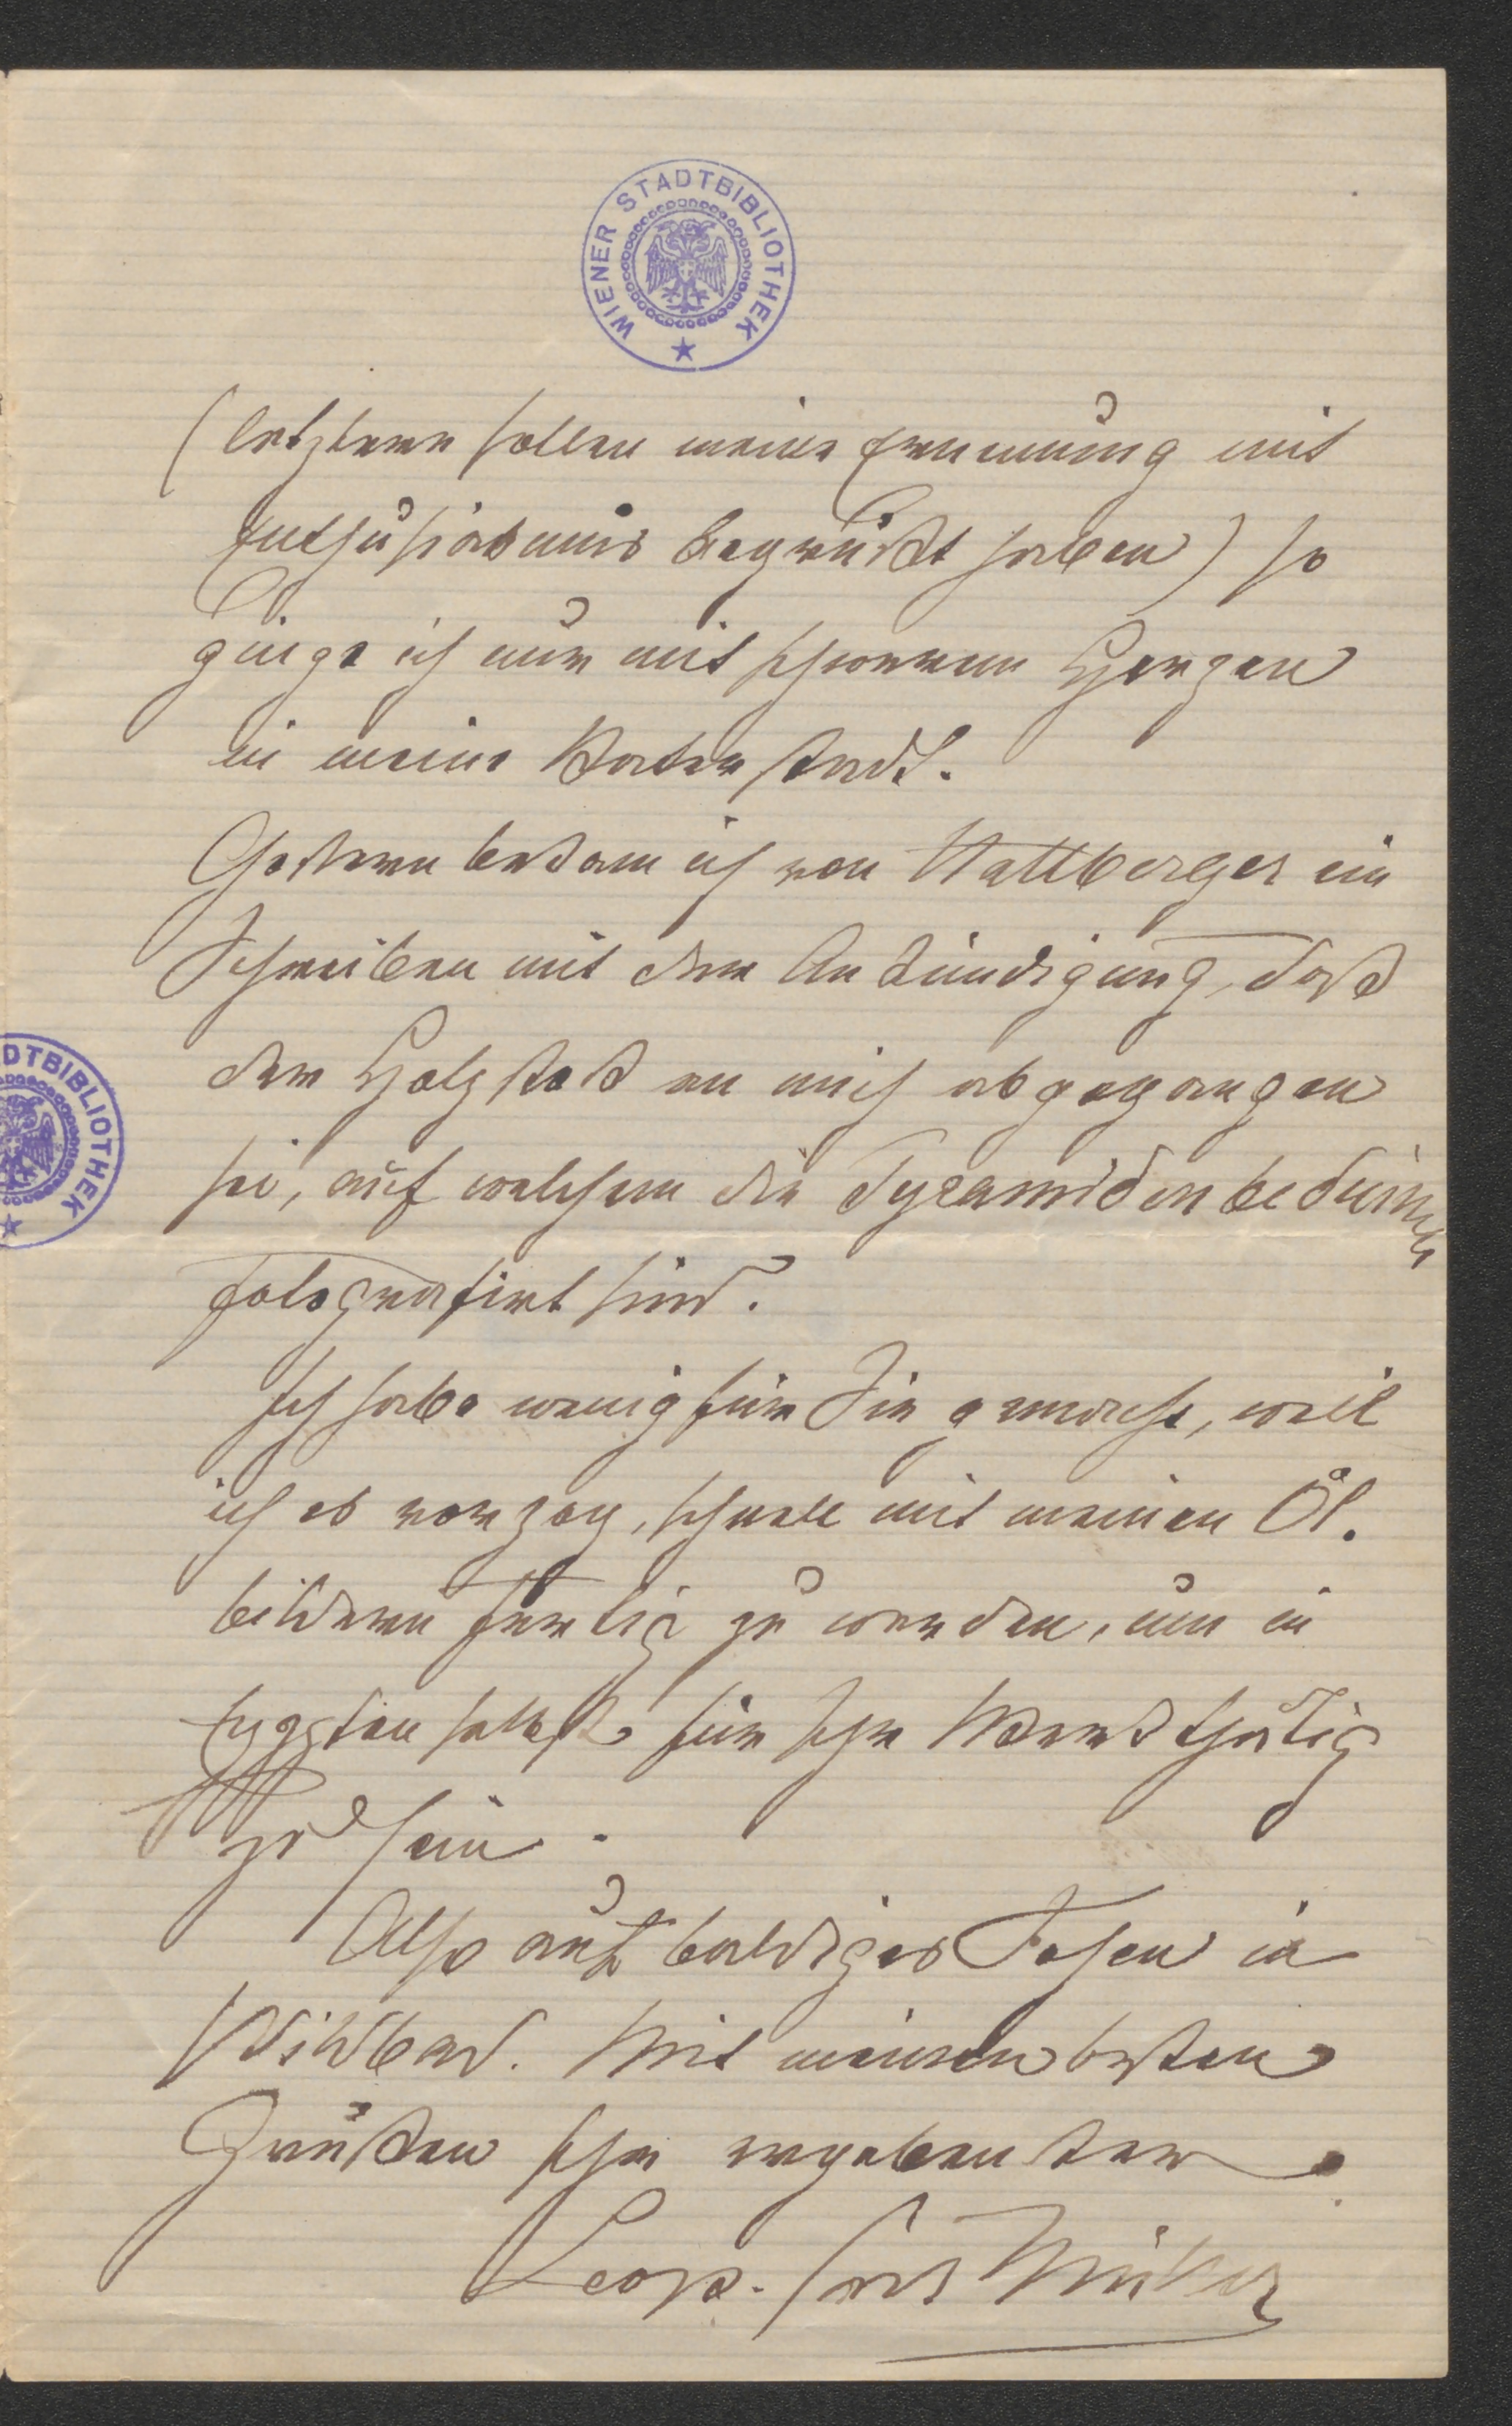 WIENER STADTBIBLIOTHEK
(letztere sollen meine Ernennung mit
Enthusiasmus begrüßt haben) so
ginge ich nur mit schwerem Herzen
in meine Vaterstadt.
Gestern bekam ich von Hallberger ein
Schreiben mit der Ankündigung, daß
der Holzstock an mich abgegangen
sei, auf welchem die Pyramidenbeduinen
fotografirt sind.
Ich habe wenig für Sie gemacht, weil
ich es vorzog, schnell mit meinen Öl-
bildern fertig zu werden, um in
Egypten selbst für Ihr Werk thätig
zu sein.
Also auf baldiges Sehen in
Wildbad. Mit meinen besten
Grüßen Ihr ergebenster
Leop. Carl Müller
DTBIBLIOTHEK